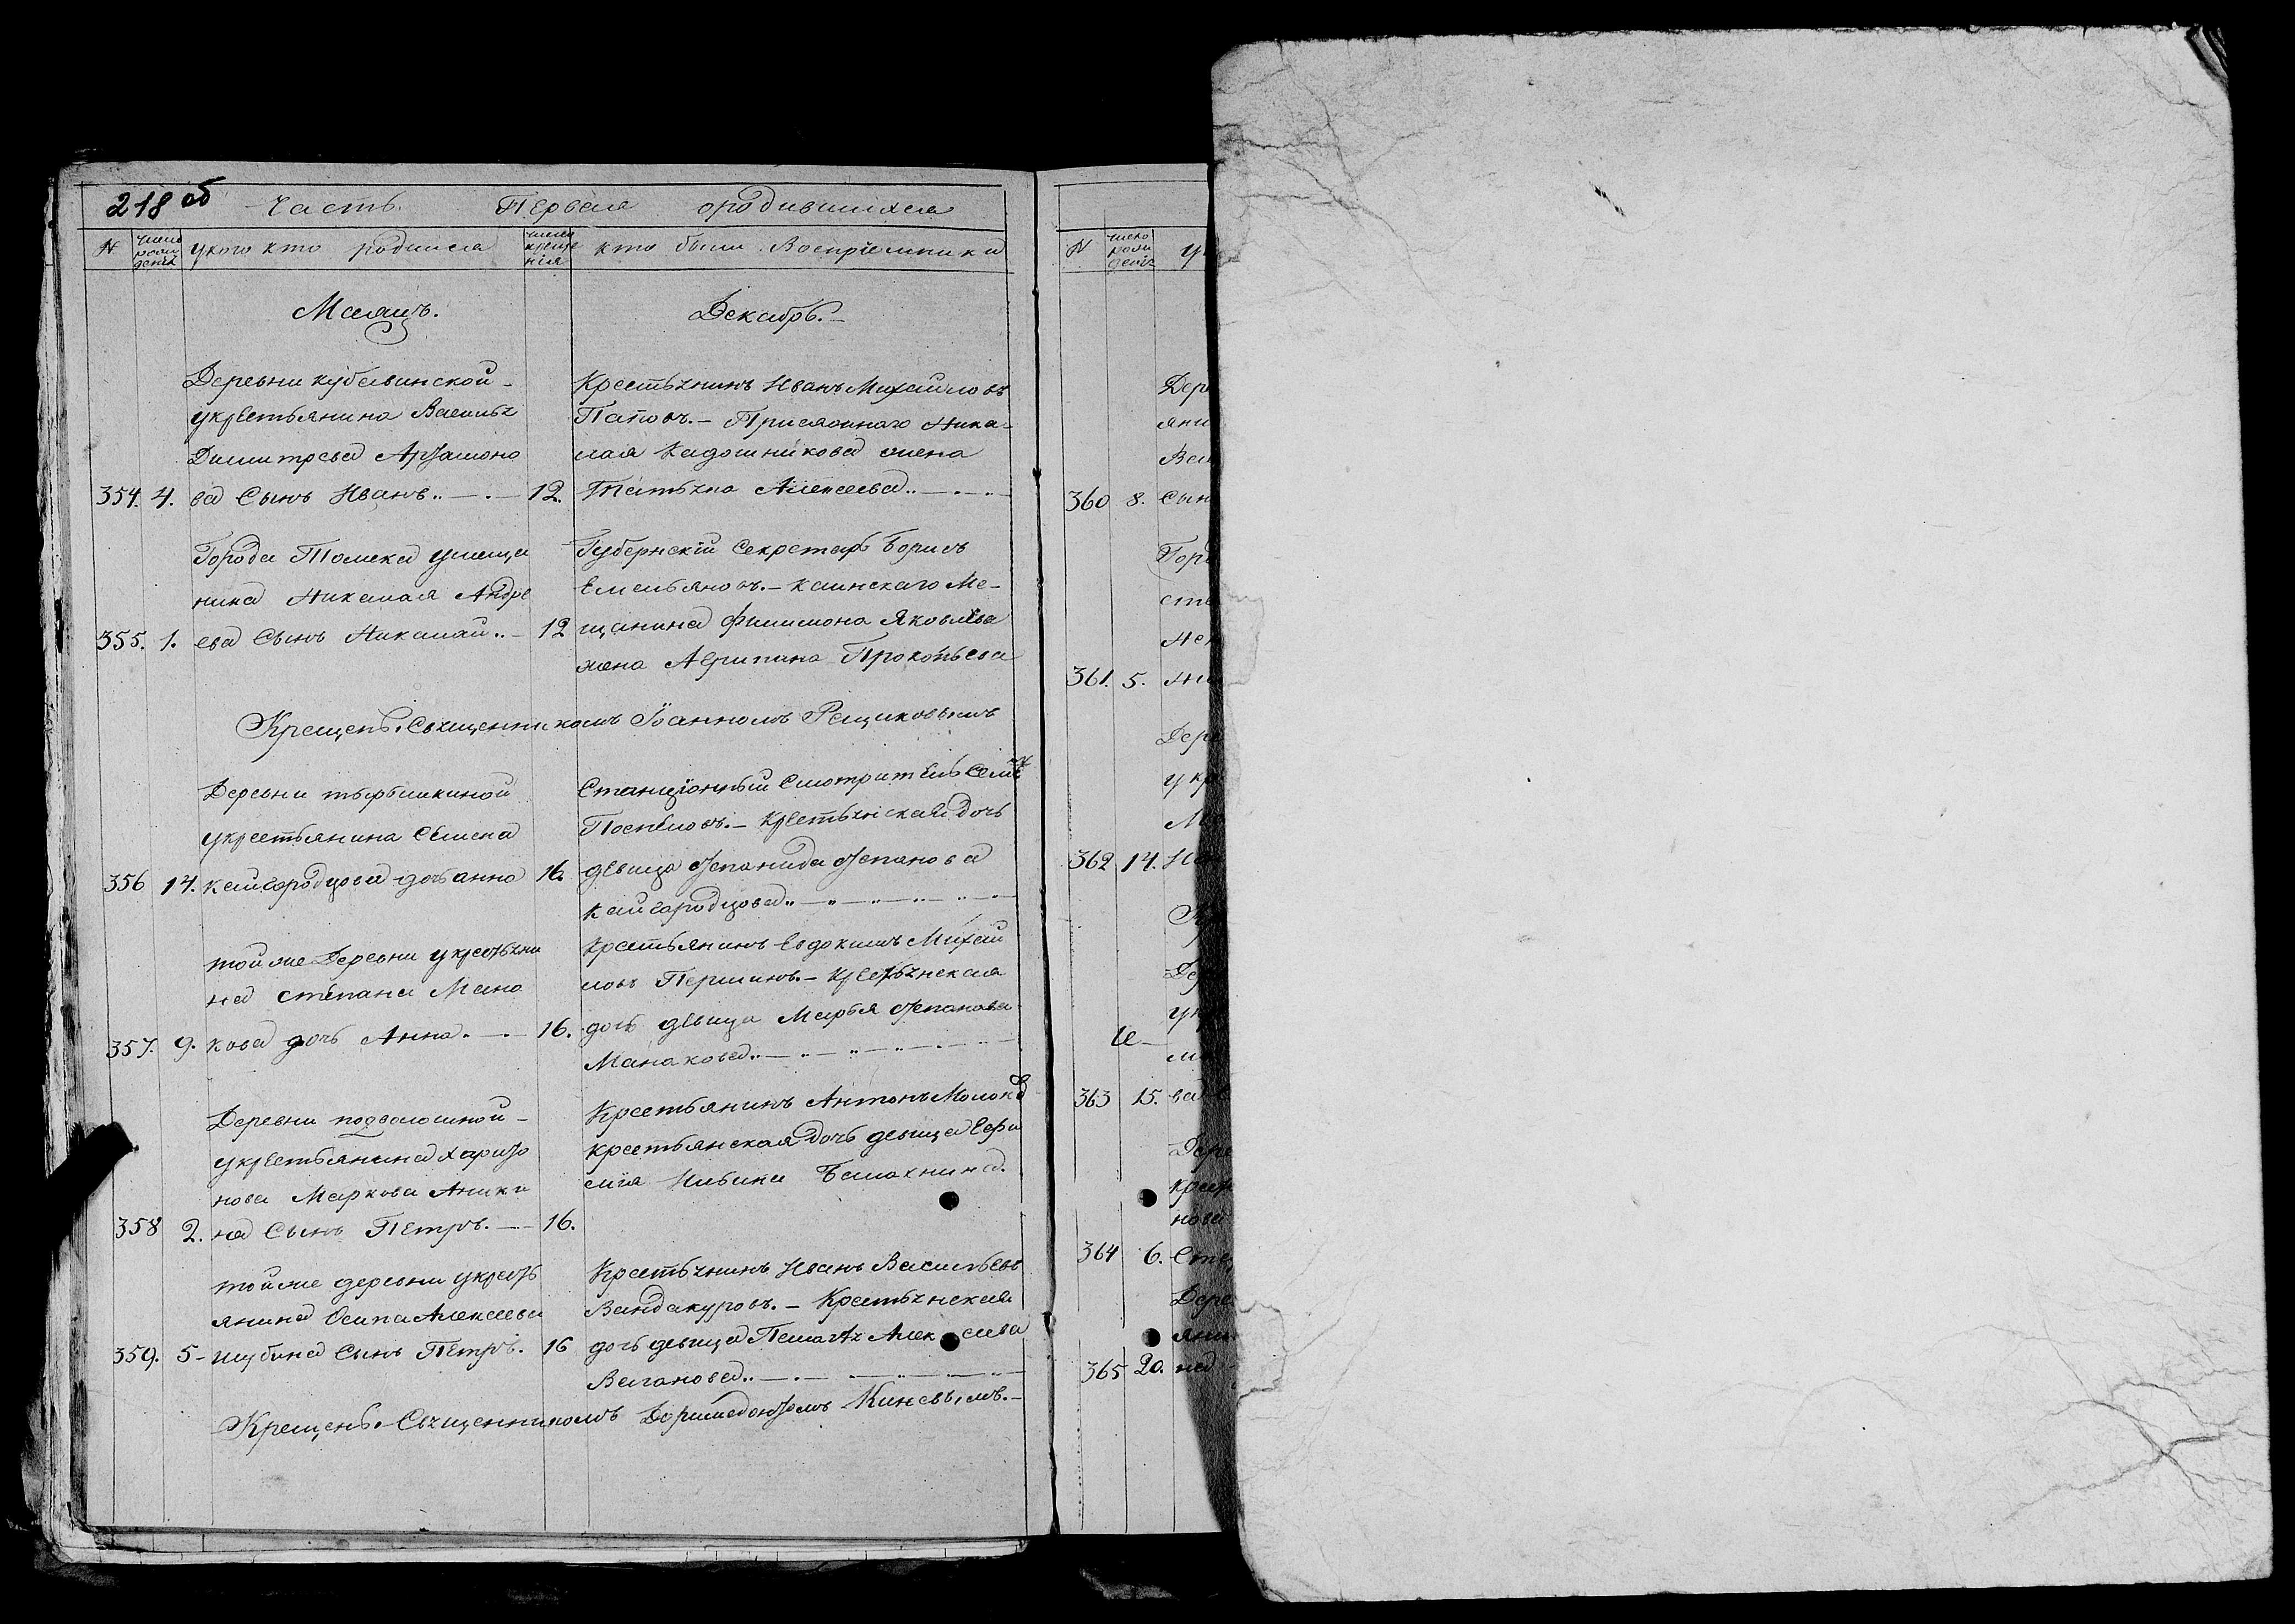 218 об
Часть Первая ородившихся
№ число рожденія укого кто родился число крещенія кто были Воспріемники
Месяцъ. Декабрь.
Деревни кубавинской
укрестьянина Василья
Димитрева Артамоно
354. 4. ва Сынъ Иванъ 12.
Крестьянинъ Иванъ Михайловъ
Паповъ. Присяжнаго Нико-
лая Кадошникова жена
Татьяна Алексеева
Города Томска умеща
нина Николая Андре
355. 1. ева Сынъ Николай 12
Губернскій Секретарь Борисъ
Емельяновъ. Каинскаго Ме-
щанина Филимона Яковлева
жена Агрипина Прокопьева
Крещенъ. Священникомъ Іоанномъ
Деревни
укрестьянина Семена
356 14. кайгородцова дочь анна 16.
Станціонный Смотритель Семе
Поспеловъ. Крестьянская Дочь
девица Степанида Степанова
Кайгородцова
тойже Деревни укрестьяни
на степана Мана
357. 9. кова дочь Анна. 16.
Крестьянинъ Евдокимъ Михай
ловъ Першинъ. Крестьянская
дочь девица Марья Степанова
Манакова
Деревни подволошной
укрестьянина Харито
нова Маркова Аники
358 2. на Сынъ Петръ. 16.
Крестьянинъ Антонъ
крестьянская Дочь девица Ефи
мія Ильина
тойже деревни укресть
янина Осипа Алексеева
359. 5 шубина Сынъ Петръ. 16
Крестьянинъ Иванъ Васильевъ
Вандакуровъ. Крестьянская
дочь девица Алексеева
Ваганова
Крещенъ. Священникомъ Доримедонтомъ
№ число рожденія
Дер
яни
360 8. Сын
Горо
361. 5.
Дере
укр
362 14.
363 15. ва
Дере
крест
нова
364 6. Сте
Дере
яни
365 20. на